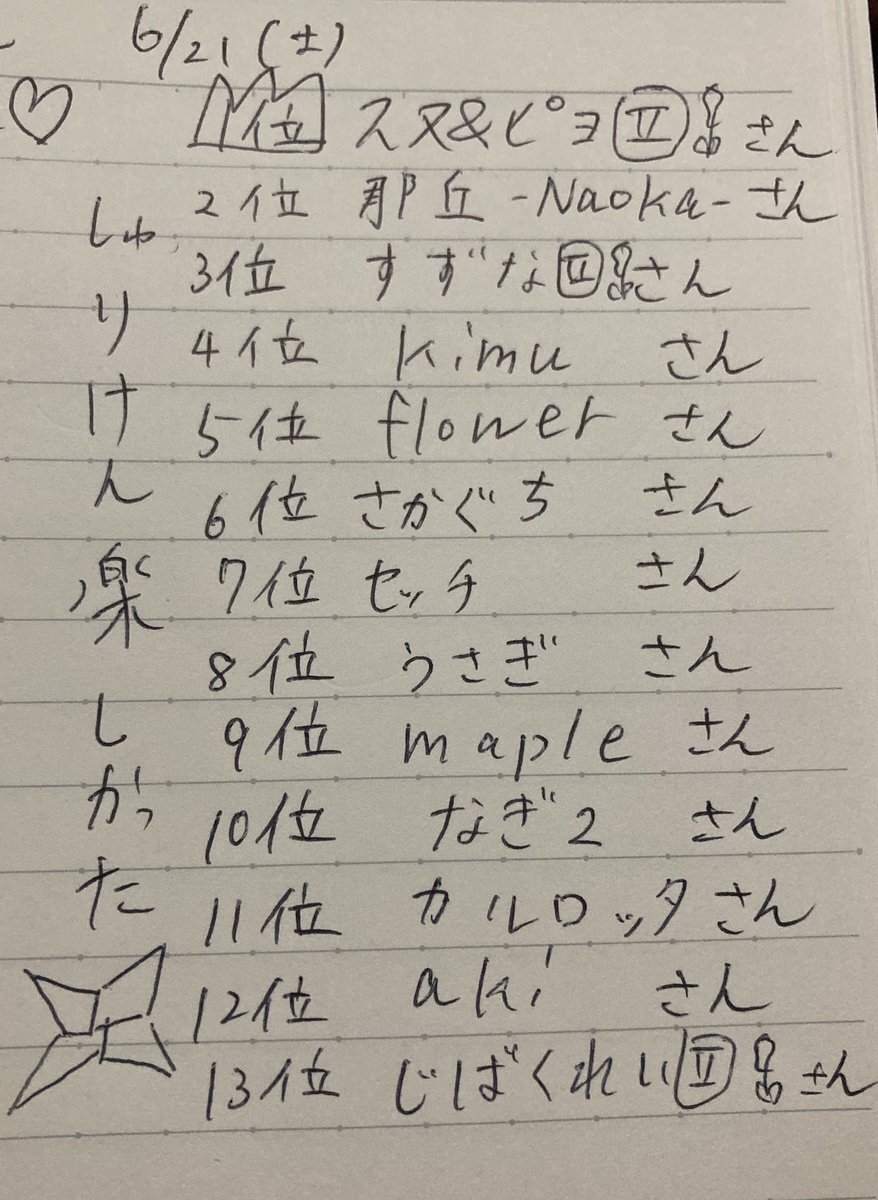 6/21(土)
1位 スヌ&ピヨⅡさん
2位 那丘-Naoka-さん
3位 すずなⅡさん
4位 kimu さん
5位 flower さん
6位 さかぐち さん
7位 セッチ さん
8位 うさぎ さん
9位 maple さん
10位 なぎ2 さん
11位 カルロッタさん
12位 aki さん
13位 じばくれいⅡさん
しゅりけん楽しかった